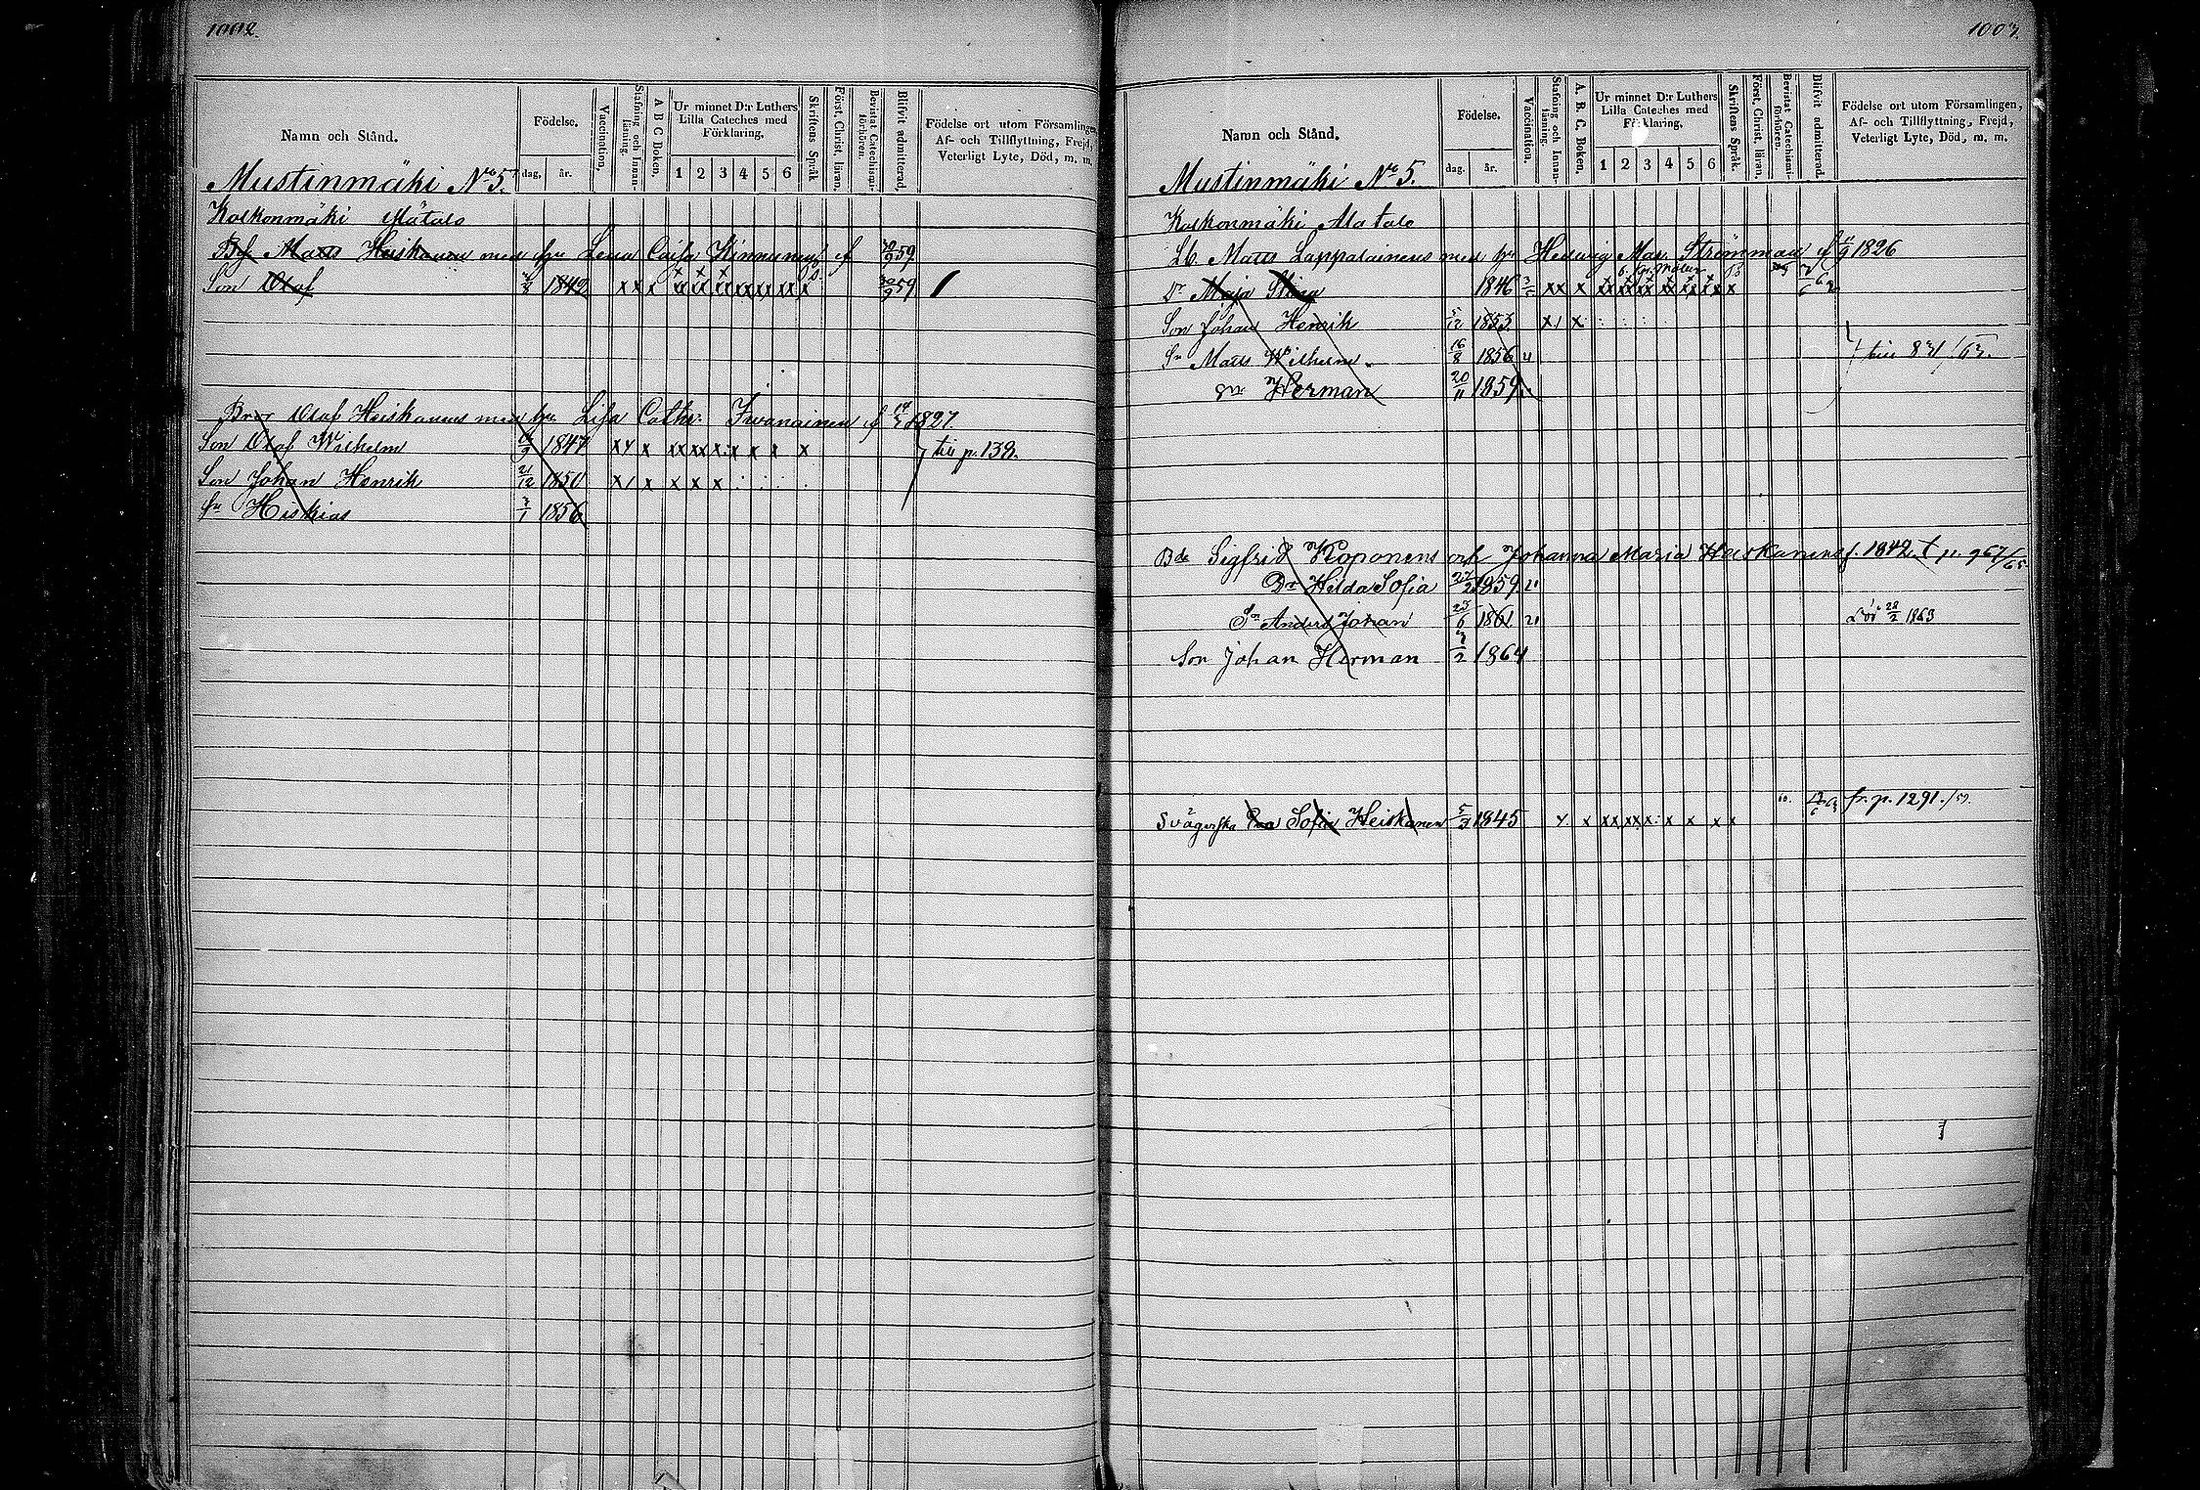 1002.
Namn och Stånd.
Födelse.
dag. år.
Vaccination.
Stafning och Innanläsning.
A B C Boken.
Ur minnet D:r Luthers Lilla Cateches med Förklaring.
1 2 3 4 5 6
Skriftens Språk
Först. Christ. läran.
Bevistat Catechismi-förhören.
Blifvit admitterad.
Födelse ort utom Församlingen,
Af- och Tillflyttning, Frejd,
Veterligt Lyte, Död, m. m.
Mustinmäki No 5.
Kolkonmäki
Matts Heiskanen med hu Lena Caisa Kinnunen 59
Son Olof 1842 x x x 59
Olof Heiskanens med hu Lisa Cathr. Iivanainen f 1827.
Son Olof Wilhelm 1847 till p. 139.
Son Johan Henrik 21/12 1850
Sn Hiskias 1856
1003.
Namn och Stånd.
Födelse.
dag. år.
Vaccination.
Stafning och Innanläsning.
A. B. C. Boken.
Ur minnet D:r Luthers Lilla Cateches med Förklaring.
1 2 3 4 5 6
Skriftens Språk.
Först. Christ. läran.
Bevistat Catechismi-förhören.
Blifvit admitterad.
Födelse ort utom Församlingen,
Af- och Tillflyttning, Frejd,
Veterligt Lyte, Död, m. m.
Mustinmäki No 5.
Kolkonmäki Alatalo
Lb. Matts Lappalainens med hu Hedwig Mar. Strömman f 1826
Dr Maja Stina 1846
Son Johan Henrik 5/12 1853
Sn Matts Wilhelm 16/8 1856 till 831/63.
Sn Herman 20/11 1859
Bde Sigfrid Koponens och Johanna Maria Heiskanens f. 1842 t p. 967/65
Dr Hilda Sofia 1859
Sn Anders Johan 1861 Död 28/2 1863
Son Johan Herman 1864
Svägerska Sofia Heiskanen 5/3 1845 fr. p. 1291./59.